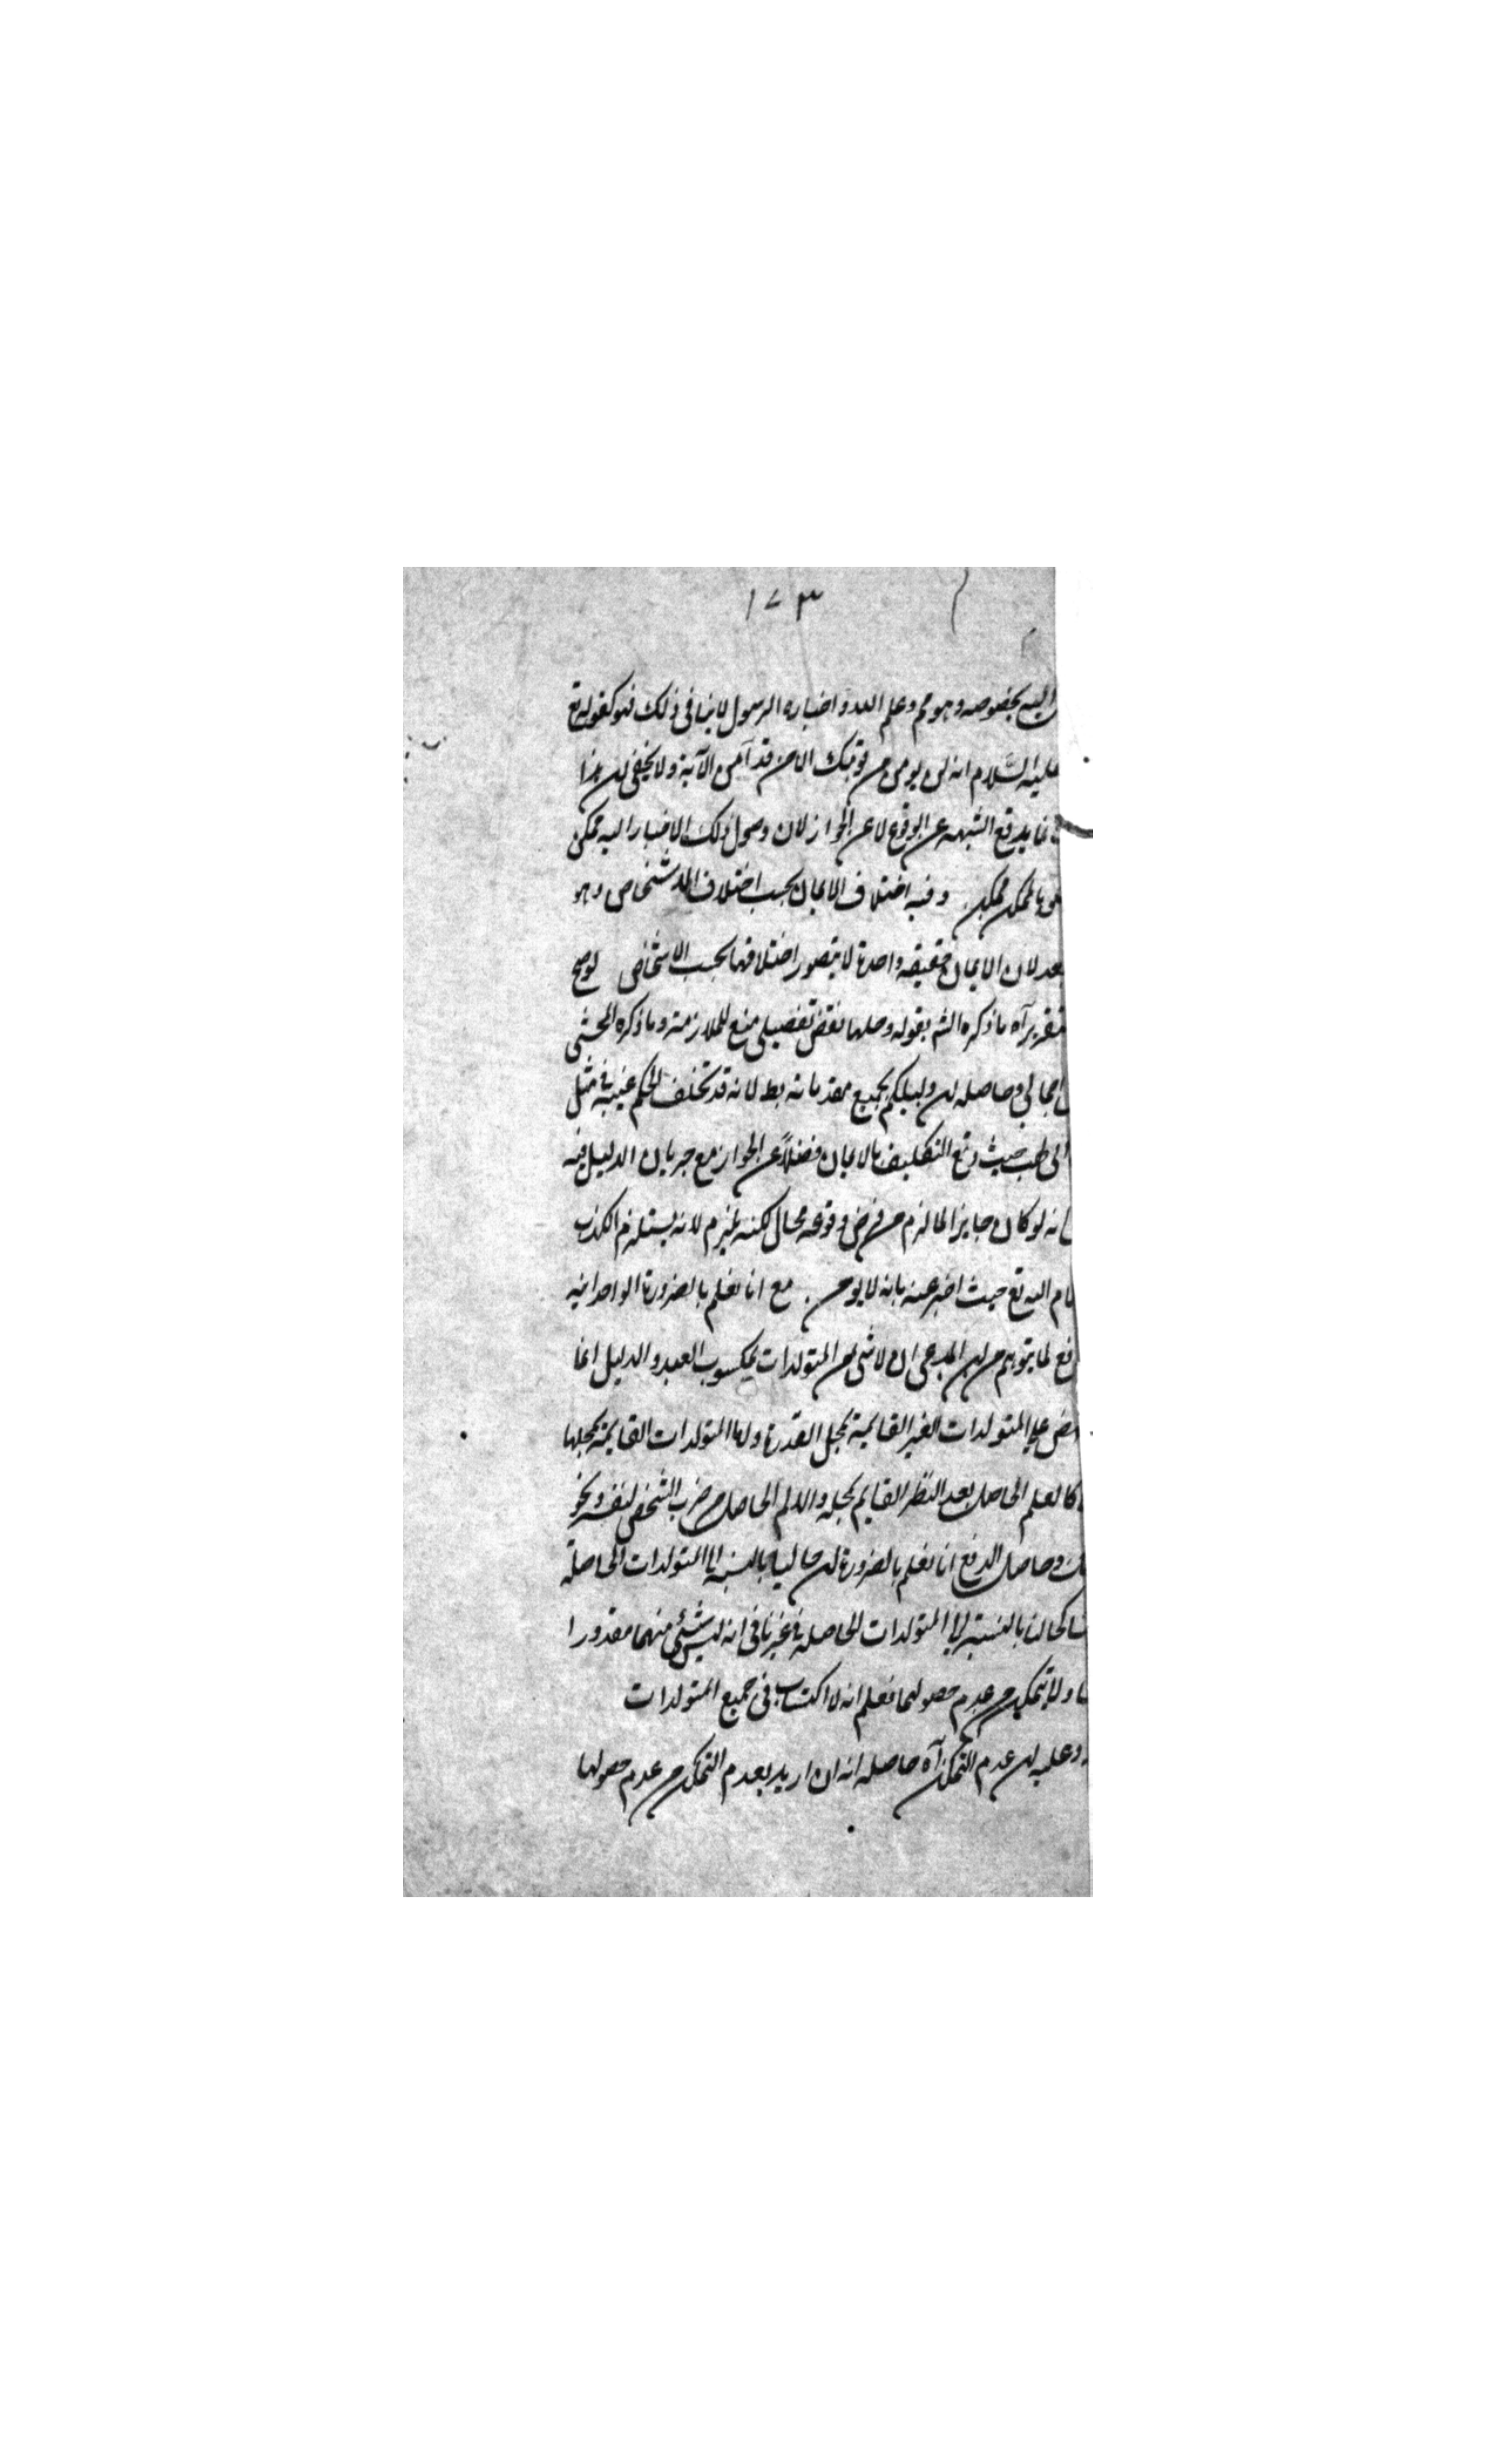 ١٧٣
اليه بخصوصه وهو مم وعلم الله واخباره الرسول لا ينافى ذلك فهو كقوله تع
عليه السّلام انه لن يومن من قومك الا من قد آمن الآية ولا يخفى ان هذا
انما يدفع الشبهه عن الوقوع لا عن الجواز لان وصول ذلك الاخبار اليه ممكن
بالممكن ممكن . وفيه اختلاف الايمان بحسب اختلاف الاشخاص وهو
بعد لان الايمان حقيقه واحدة لا يتصور اختلافها بحسب الاشخاص لو صح
تقرير آه ما ذكره الش بقوله وحلها نقض تفصيلى منع للملازمة وما ذكره المحشى
اجمالي وحاصله ان دليلكم بجميع مقدماته بط لانه قد تخلف الحكم عنه فى مثل
ابى لهب حيث وقع التكليف بالايمان فضلاً عن الجواز مع جريان الدليل فيه
انه لو كان جايزا لما لزم من فرض وقوعه محال لكنه يلزم لانه يستلزم الكذب
كلام الله تع حيث اخبر عنه بانه لا يومن . مع انا نعلم بالضرورة الوجدانيه
دفع لما يتوهم من ان المدعى ان لا شى من المتولدات بمكسوب العبد والدليل انما
على المتولدات الغير القايمة بمحل القدرة واما المتولدات القايمة بمحلها
كالعلم الحاصل بعد النظر القايم بمحله والالم الحاصل من ضرب الشخص لنفسه ونحو
ذلك وحاصل الدفع انا نعلم بالضرورة ان حالنا بالنسبة الى المتولدات الحاصلة
كحالنا بالنسبة الى المتولدات الحاصله فى غيرنا فى انه ليس شئى منهما مقدورا
ولا نتمكن من عدم حصولهما فعلم انه لا اكتساب فى جميع المتولدات
وعليه ان عدم التمكن آه حاصله انه ان اريد بعدم التمكن من عدم حصولها